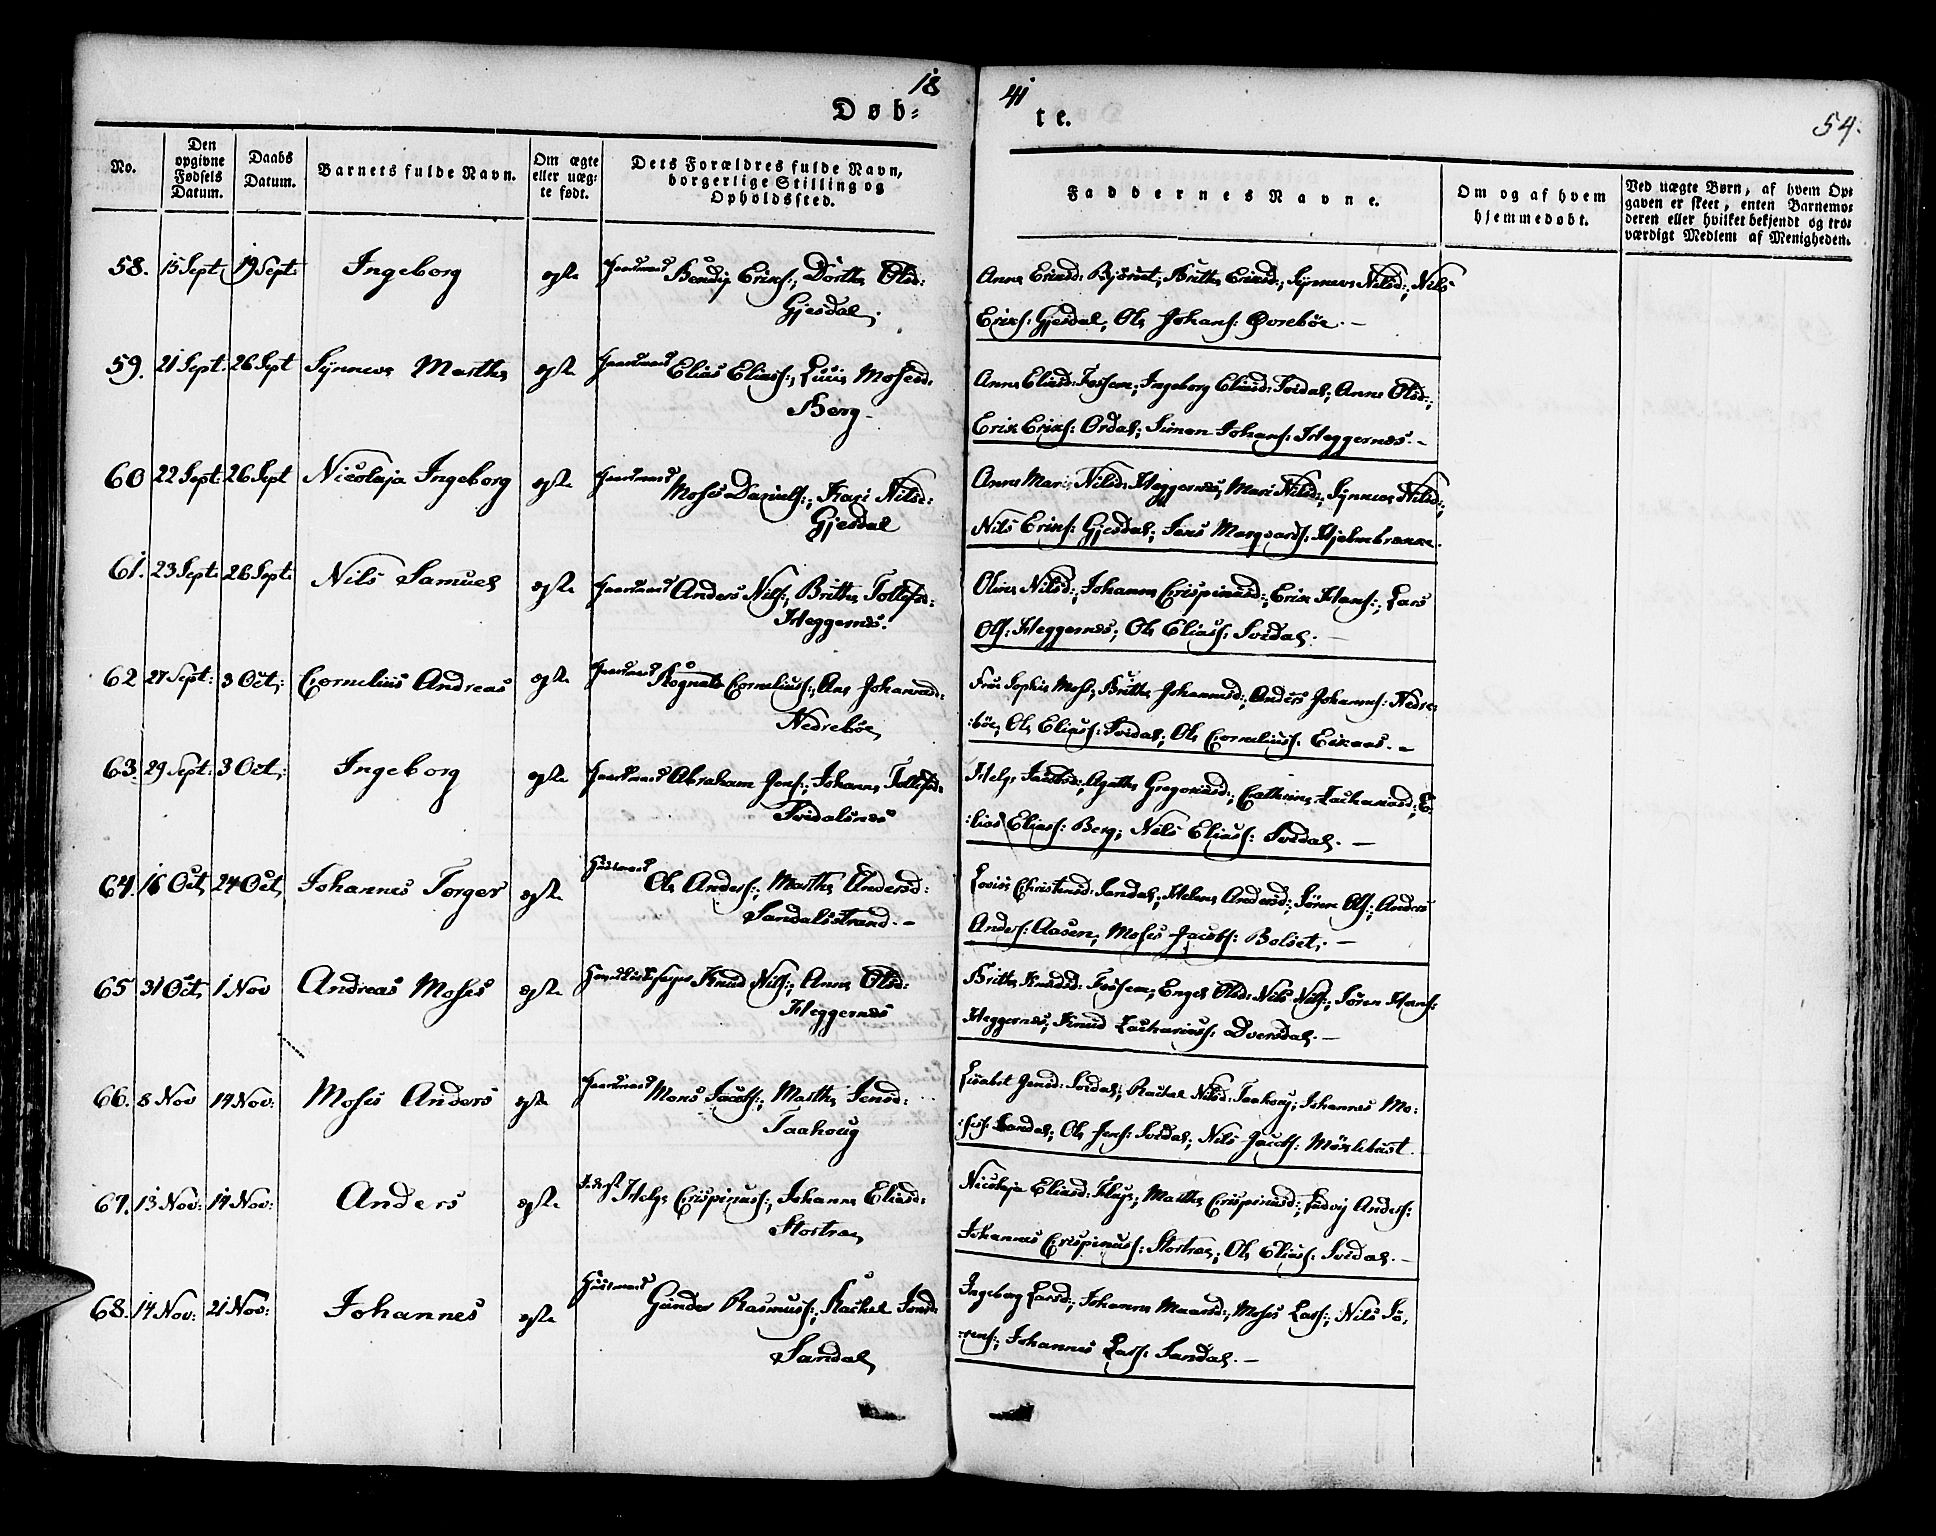 18
41
54.
Døb-
te.
No.
Den opgivne Fødsels Datum.
Daabs Datum.
Barnets fulde Navn.
Om ægte eller uæg-te født.
Dets Forældres fulde Navn, borgerlige Stilling og Opholdssted.
Faddernes Navne.
Om og af hvem hjemmedøbt.
Ved uægte Børn, af hvem Op-
gaven er skeet, enten Barnemo-
deren eller hvilket bekjendt og tro-
værdigt Medlem af Menigheden.
58. 15 Sept 19 Sept Ingeborg egte Gaardmand Bendix Erics:, Dorthe Olsd:
Gjesdal.
Anna Ericsd: Bjørset; Brithe Ericsd:; Synneve Nilsd:; Nils
Erics: Gjesdal, Ole Johans: Øvrebøe. —
59. 21 Sept: 26 Sept Synneve Marthe egte Gaardmand Elias Elias:, Mosesd:
Berg —
Anne Eliasd: Fossem; Ingeborg Eliasd: Svidal; Anne Olsd:;
Erik Eriks: Ordal; Simon Johans: Heggernes. —
60 22 Sept: 26 Sept Nicolaja Ingeborg egte Gaardmand Moses Daniels:, Kari Nilsd:
Gjesdal
Anne Mari Nilsd: Heggernes; Mari Nilsd:; Synneve Nilsd:;
Nils Eriks: Gjesdal; Jens Marqvards: Hjelmbrekke.
61. 23 Sept: 26 Sept: Nils Samuel egte Gaardmand Anders Nils:, Brithe Tollefsd:
Heggernes.
Oline Nilsd:; Johanne Crispinusd:; Erik Hans:; Lars
Ols: Heggernes; Ole Elias: Svidal. —
62 27 Sept: 3 Oct; Cornelius Andreas egte Gaardmand Rognald Cornelius:, Ane Johannesd:
Nedrebøe
Fru Sophie Mos, Brithe Johannesd:; Anders Johannes: Nedre-
-bøe, Ole Elias: Svidal; Ole Cornelius: Eikaas. —
63. 29 Sept: 3 Oct; Ingeborg egte Gaardmand Abraham Jens:; Johanne Tollefsd:
Svidalsnes
Helge Jacobsd:; Agathe Gregoriusd:; Cathrine Zachariasd:; E-
-lias Elias: Berg; Nils Elias: Svidal. —
64. 16 Oct, 24 Oct, Johannes Torger egte Huusmand Ole Anders:, Marthe Andersd:
Sandalsstrand. —
Lovise Christensd: Sandal; Helene Andersd:; Søren Ols:; Anders
Anders: Aasen, Moses Jacobs: Bolset. —
65 31 Oct, 1 Nov Andreas Moses egte Knud Nils:, Anne Olsd:
Heggernes
Brithe Knudsd: Fossem; Engel Olsd: Nils Nils:; Søren Hans:
Heggernes; Knud Zacharias: Dversdal. —
66. 8 Nov 14 Nov: Moses Anders egte Gaardmand Mons Jacobs:, Marthe Jensd:
Taahoug
Lisabet Jensd: Svidal; Rachel Nilsd: Taahoug; Johannes Mo-
-ses: Sandal; Ole Jens: Svidal; Nils Jacobs: Myklebust.
67. 13 Nov: 14 Nov: Anders egte Inderst Helge Crispinus:, Johanne Eliasd:
Stortræe
Nicolaja Eliasd: Fluge; Marthe Crispinusd:; Ludvig Anders:
Johannes Crispinus: Stortræe; Ole Elias: Svidal. —
68. 14 Nov: 21 Nov: Johannes egte Huusmand Gunder Rasmus:, Rachel Jensd:
Sandal
Ingeborg Larsd:; Johanne Maarsd:; Moses Lars:; Nils Sø-
-rens:; Johannes Lars: Sandal. —